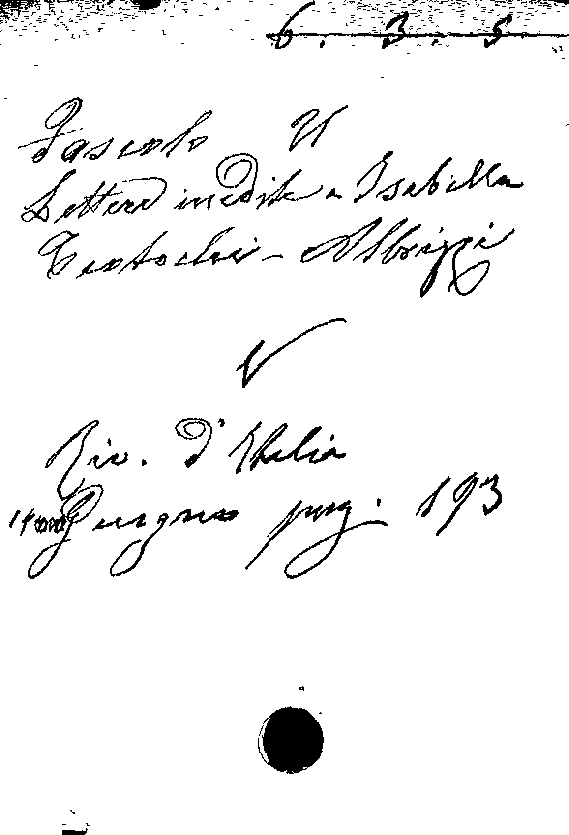 6. 3. 5
Foscolo U
Lettere inedite a Isabella
Teotochi-Albrizzi
V
Riv. d'Italia
Giugno pag. 193